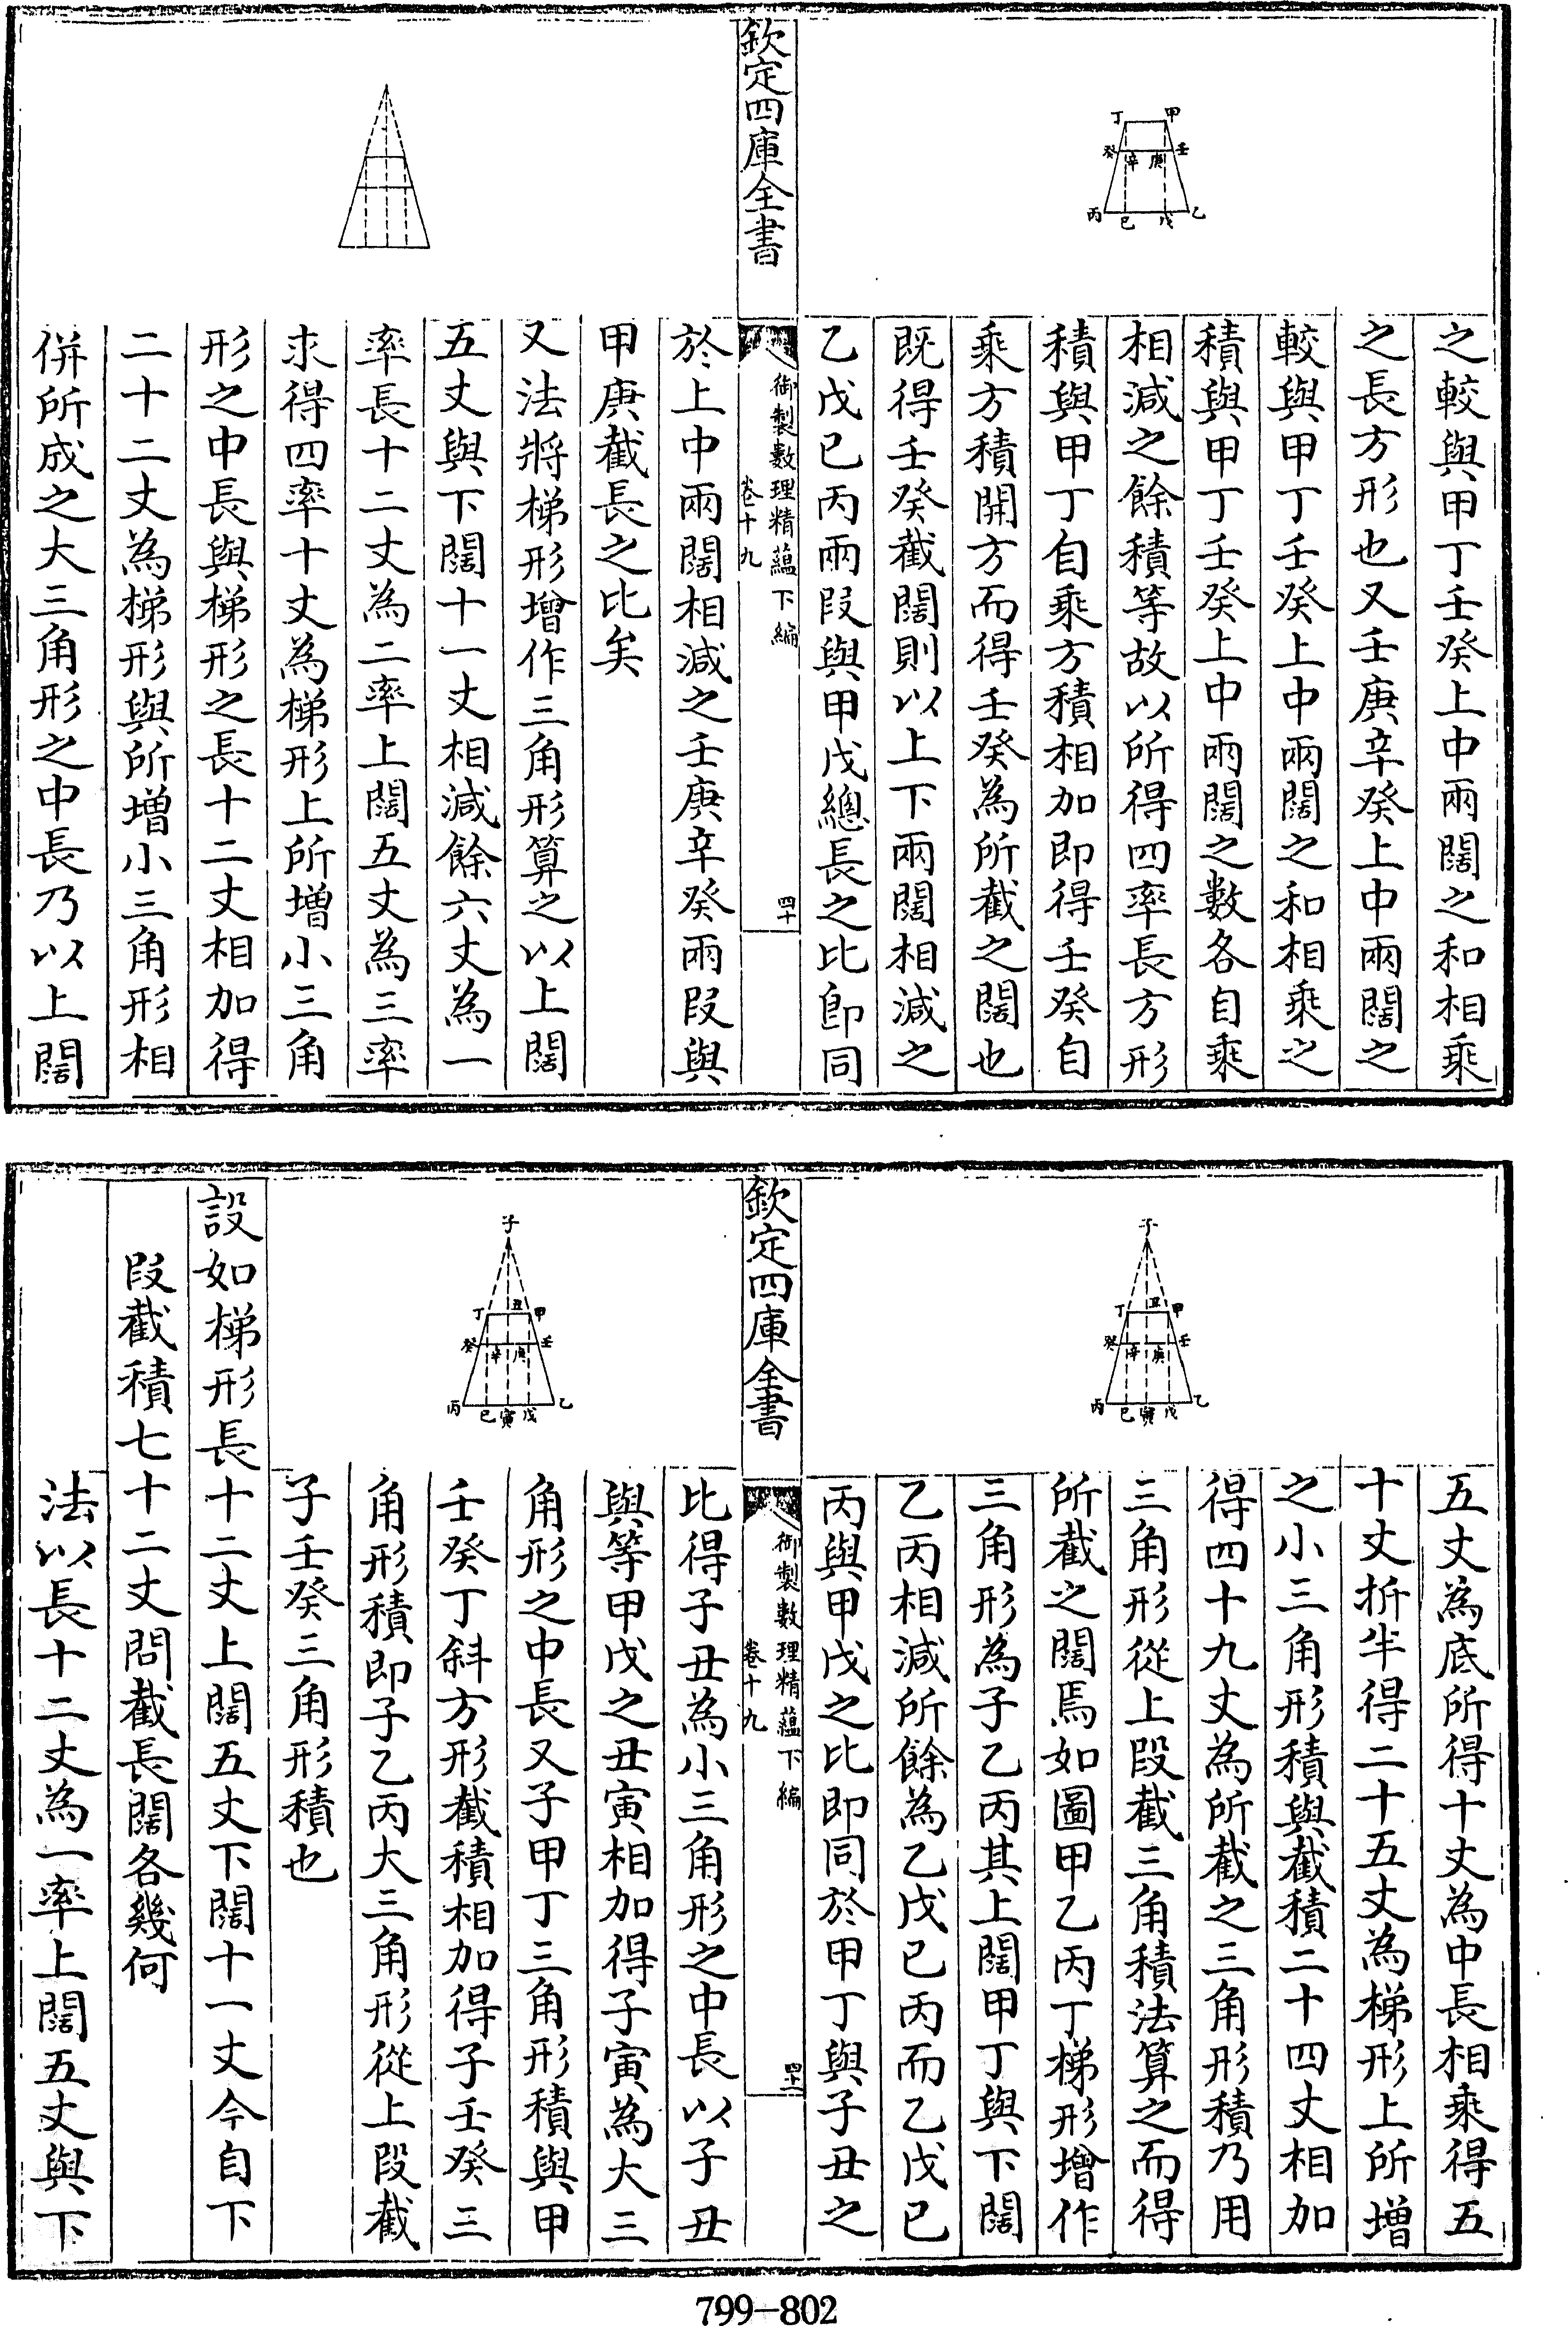 丁 甲
癸 辛 庚 壬
丙 已 戊 乙
之較與甲丁壬癸上中兩闊之和相乘
之長方形也又壬庚辛癸上中兩闊之
較與甲丁壬癸上中兩闊之和相乘之
積與甲丁壬癸上中兩闊之數各自乘
相減之餘積等故以所得四率長方形
積與甲丁自乘方積相加即得壬癸自
乘方積開方而得壬癸為所截之闊也
既得壬癸截闊則以上下兩闊相減之
乙戊已丙兩段與甲戊總長之比即同
欽定四庫全書
御製數理精蘊下編
卷十九
四十
於上中兩闊相減之壬庚辛癸兩段與
甲庚截長之比矣
又法將梯形增作三角形算之以上闊
五丈與下闊十一丈相減餘六丈為一
率長十二丈為二率上闊五丈為三率
求得四率十丈為梯形上所增小三角
形之中長與梯形之長十二丈相加得
二十二丈為梯形與所增小三角形相
併所成之大三角形之中長乃以上闊
子
丁 丑 甲
癸 辛 庚 壬
丙 已 寅 戊 乙
五丈為底所得十丈為中長相乘得五
十丈折半得二十五丈為梯形上所增
之小三角形積與截積二十四丈相加
得四十九丈為所截之三角形積乃用
三角形從上段截三角積法算之而得
所截之闊焉如圖甲乙丙丁梯形增作
三角形為子乙丙其上闊甲丁與下闊
乙丙相減所餘為乙戊已丙而乙戊已
丙與甲戊之比即同於甲丁與子丑之
欽定四庫全書
御製數理精蘊下編
卷十九
四十一
比得子丑為小三角形之中長以子丑
與等甲戊之丑寅相加得子寅為大三
角形之中長又子甲丁三角形積與甲
壬癸丁斜方形截積相加得子壬癸三
角形積即子乙丙大三角形從上段截
子壬癸三角形積也
子
丁 丑 甲
癸 辛 庚 壬
丙 已 寅 戊 乙
設如梯形長十二丈上闊五丈下闊十一丈今自下
段截積七十二丈問截長闊各幾何
法以長十二丈為一率上闊五丈與下
799-802